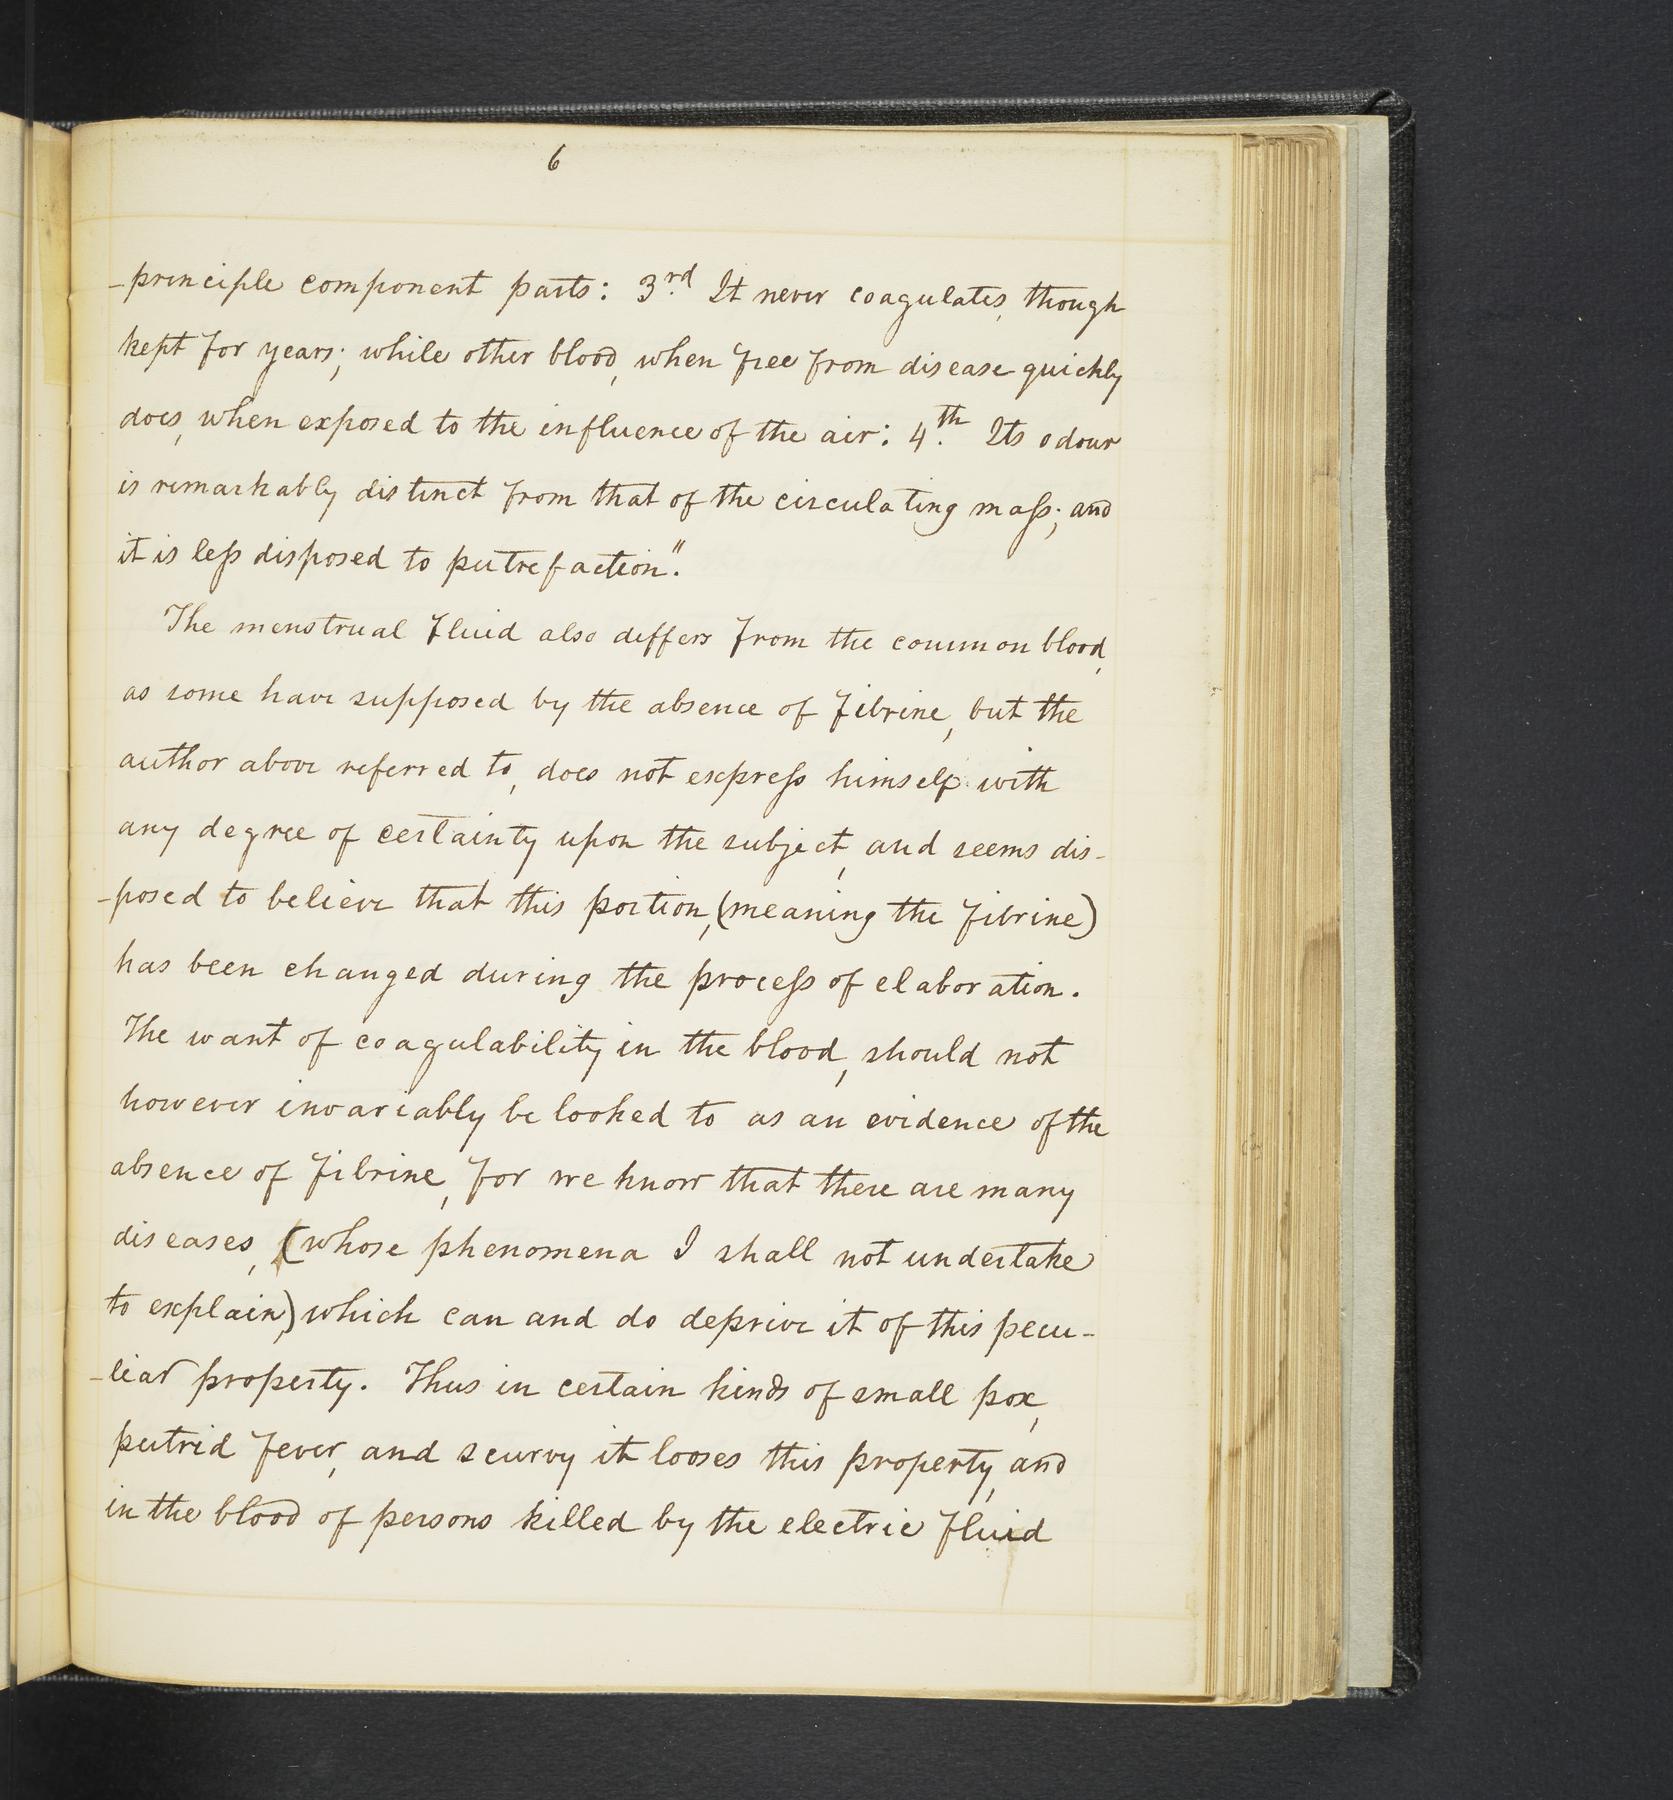 6
-principle component parts: 3.rd It never coagulates, though
kept for years; while other blood, when free from disease quickly
does, when exposed to the influence of the air: 4.th Its odour
is remarkably distinct from that of the circulating maſs; and
it is leſs disposed to putrefaction."
The menstrual fluid also differs from the common blood,
as some have supposed by the absence of fibrine, but the
author above referred to, does not expreſs himself with
any degree of certainty upon the subject, and seems dis-
-posed to believe that this portion, (meaning the fibrine)
has been changed during the proceſs of elaboration.
The want of coagulability in the blood, should not
however invariably be looked to as an evidence of the
absence of fibrine, for we know that there are many
diseases, (whose phenomena I shall not undertake
to explain,) which can and do deprive it of this pecu-
-liar property. Thus in certain kinds of small pox,
putrid fever, and scurvy it looses this property, and
in the blood of persons killed by the electric fluid